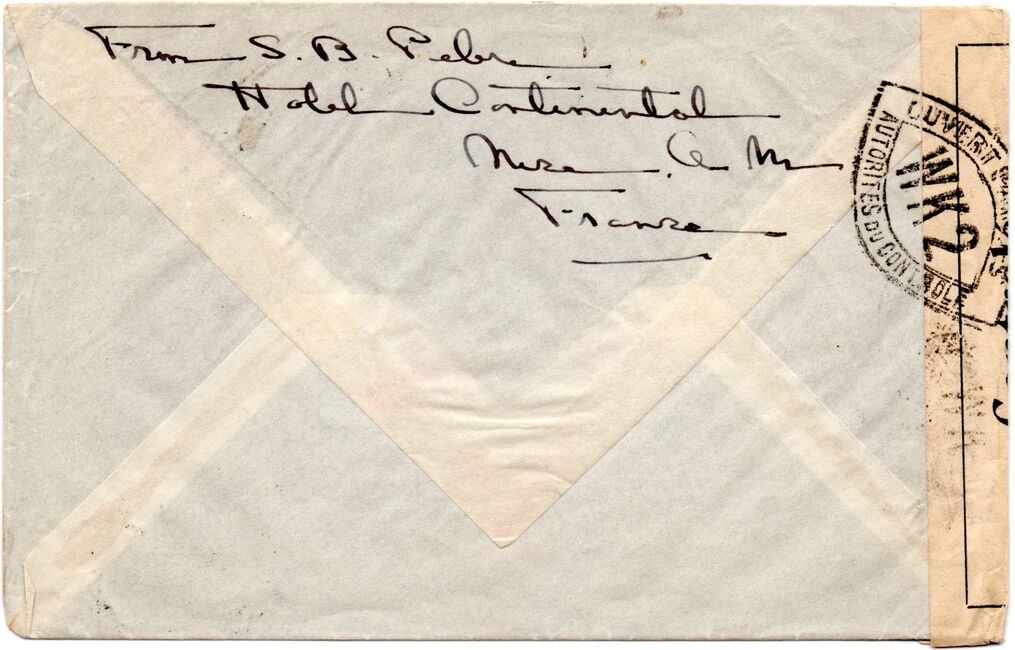 From S. B.
Hotel Continental
Nice. A M
France
OUVERT
AUTORITÉS DU CONTROLE
WK 2